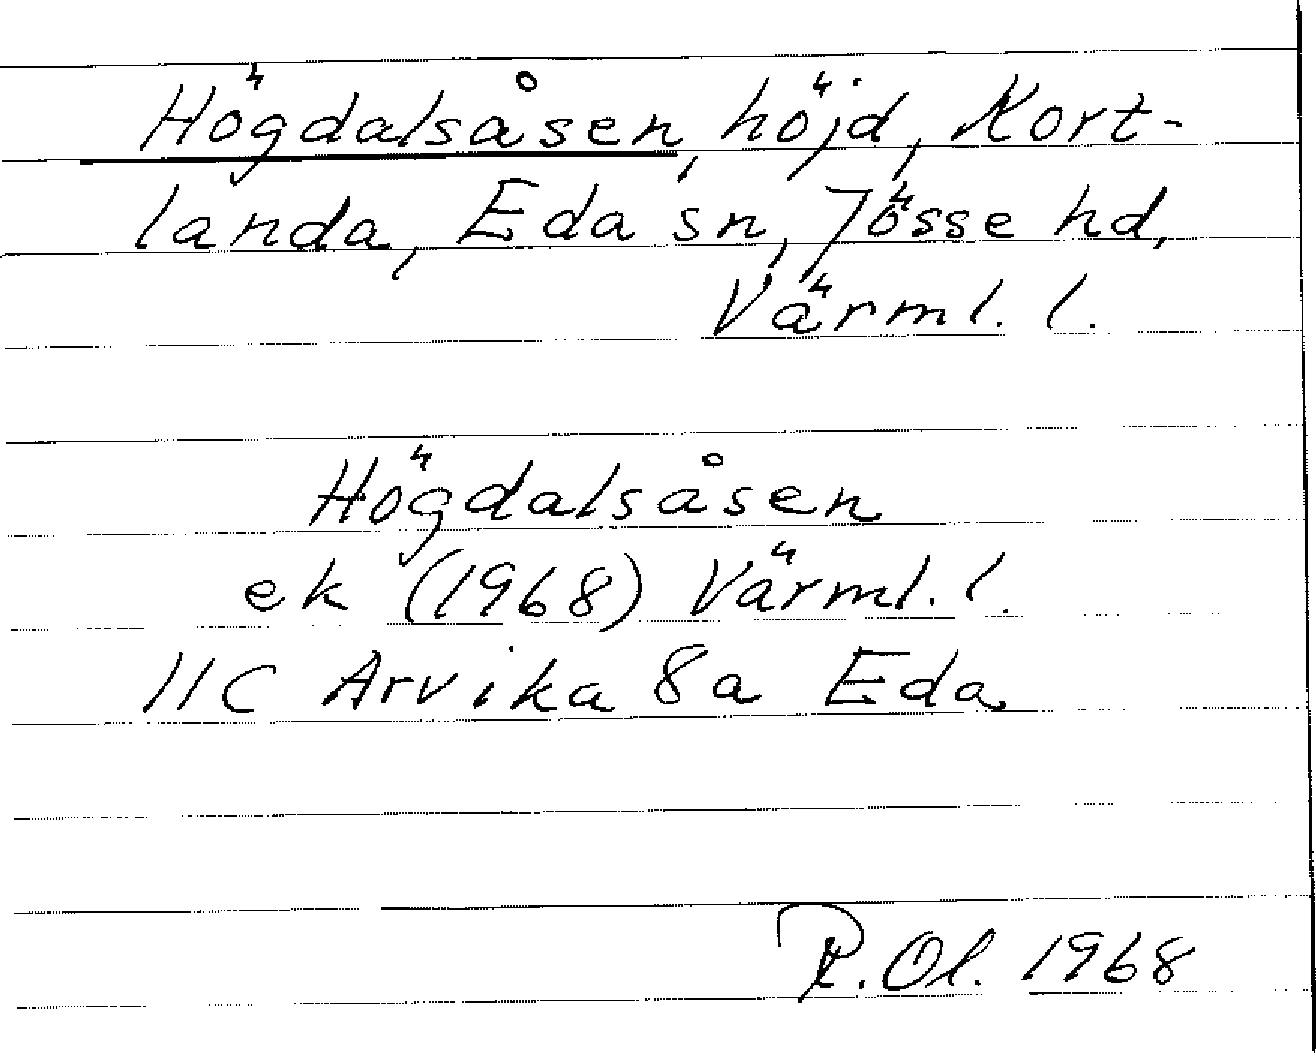 Högdalsåsen, höjd, Kort-
landa, Eda sn, Jösse hd,
Värml. l.
Högdalsåsen
ek (1968) Värml. l.
11C Arvika 8a Eda
R. Ol. 1968